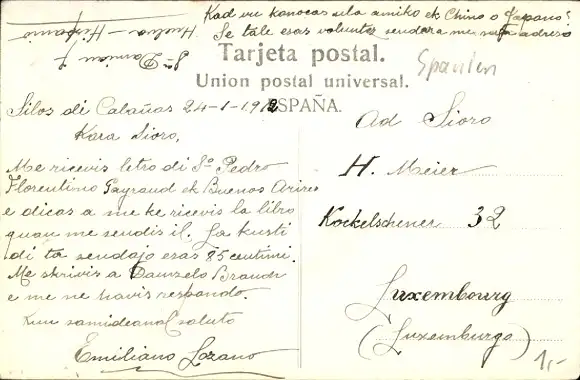 Kad vu konocas ula amiko ek Chino o Japano?
Se tale esas volunter sendera me sua adreso
Sro Damian
Huelva - Hispanio
Tarjeta postal.
Union postal universal.
ESPAÑA.
Spanien
Silos di Calañas 24-1-1912
Kara Sioro,
Me ricevis letro di So Pedro
Florentino Payraud ek Buenos Aires
e dicas a me ke ricevis la libro
quan me sendis il. La kusti
di ta sendajo esas 85 centimi.
Me skrivis a Damzelo Brandt
e me ne havis respondo.
Kun samideanal saluto
Emiliano Lozano
Ad Sioro
H. Meier
Kockelscheuer 32
Luxembourg
(Luxemburgo)
1,-